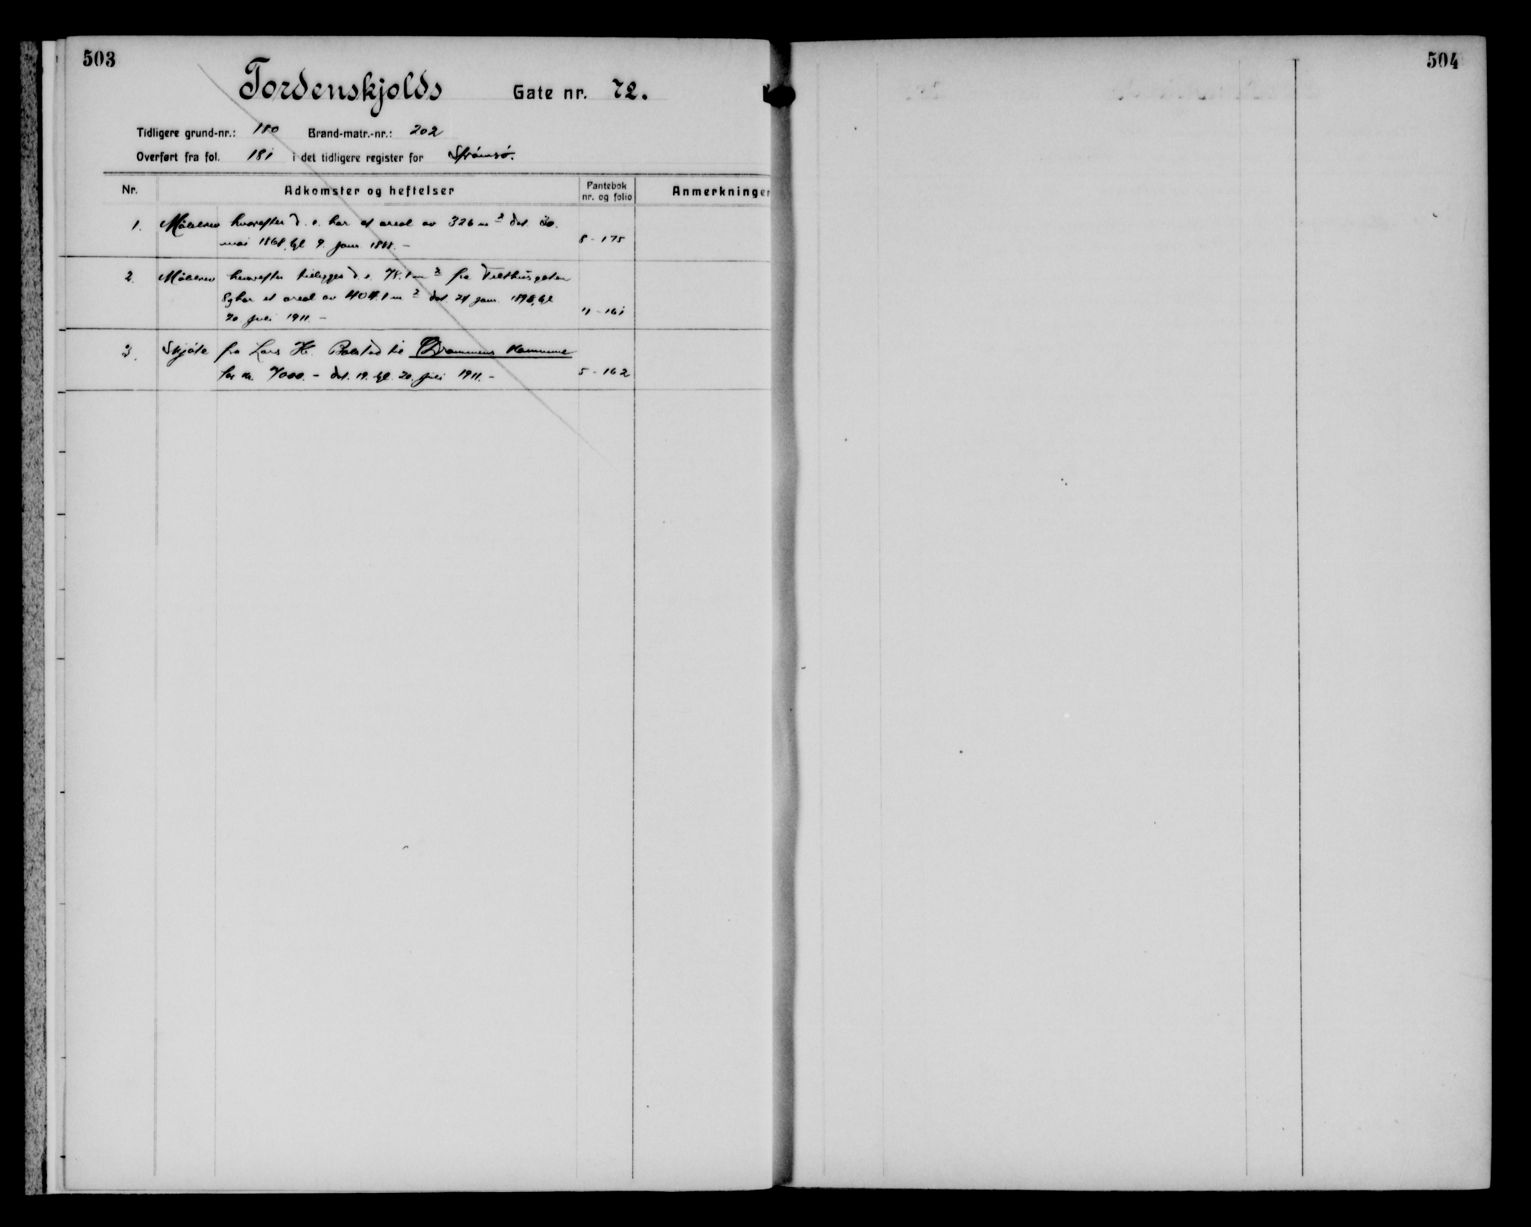 503
Tordenskjolds Gate nr. 72.
Tidligere grund-nr.: 180 Brand-matr.-nr.: 202
Overført fra fol. 181 i det tidligere register for Strømsø.
Nr. Adkomster og heftelser Pantebok nr. og folio Anmerkninger
1. Målebrev hvorefter d. e. har et areal av 326 m² dat. 20.
mai 1868, tgl. 9. jan. 8 - 175
2. Målebrev hvorefter tillegges d. e. 78.1 m² fra Tollhusgaten
og har et areal av 404.1 m² dat 24 jan. tgl
20 juli 1911. - 161
3. Skjøte fra Lars H. til Drammens Kommune
for kr. 7000. - dat. 19. tgl. 20. juli 1911. - 5 - 162
504